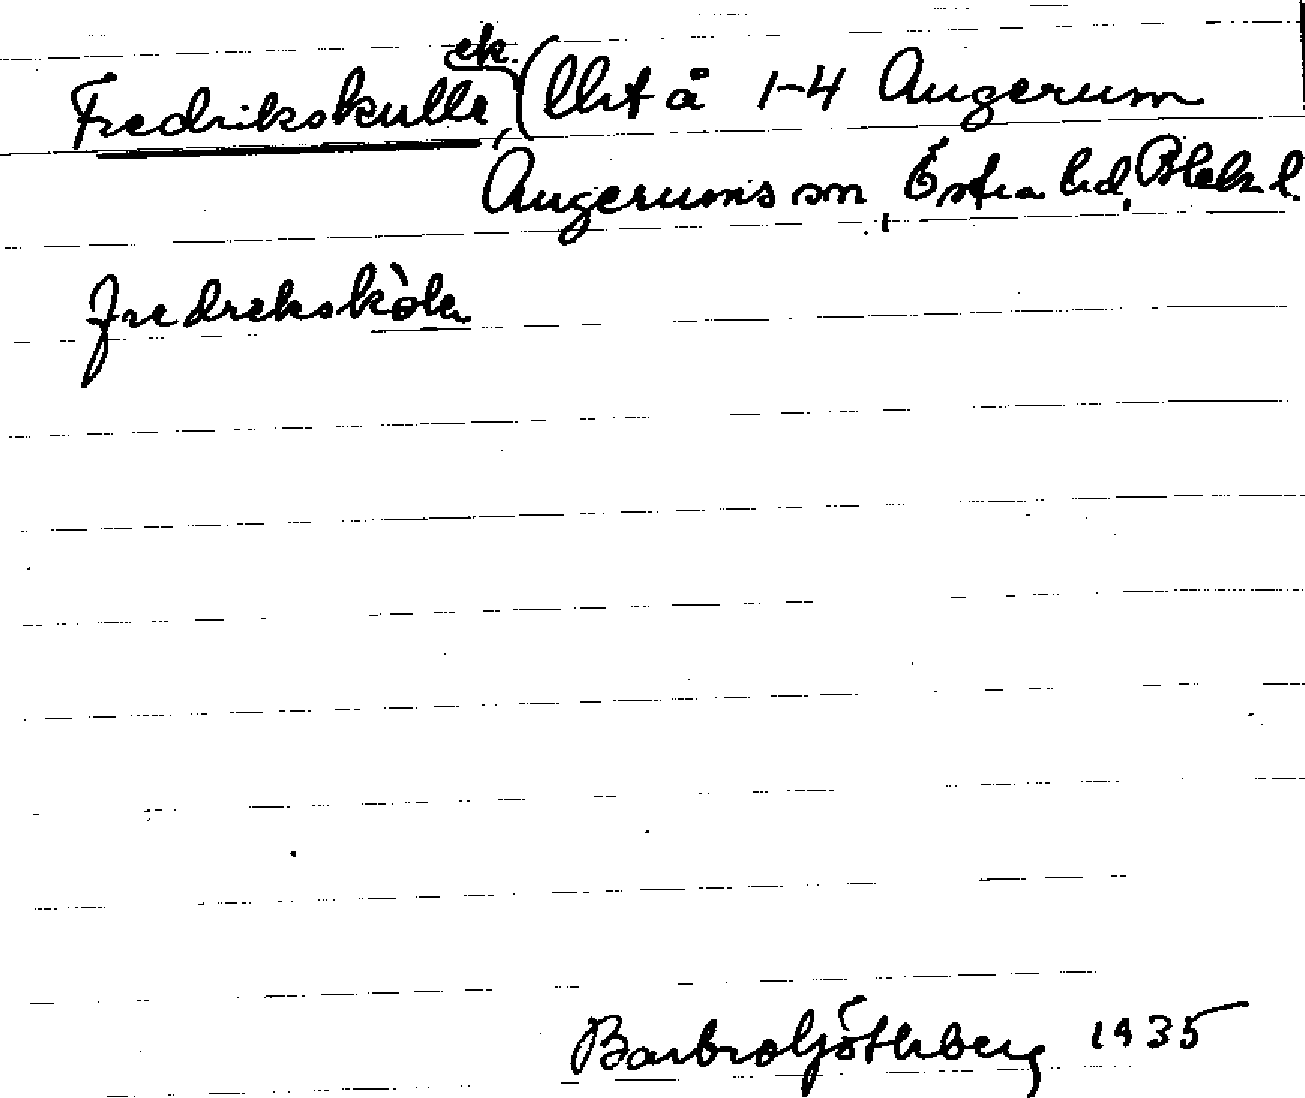 Fredrikskulle, ek. (lht å 1-4 Augerum
Augerums sn, Östra hd, Blek. l.
fredrekskòlen
Barbro Göthberg 1935